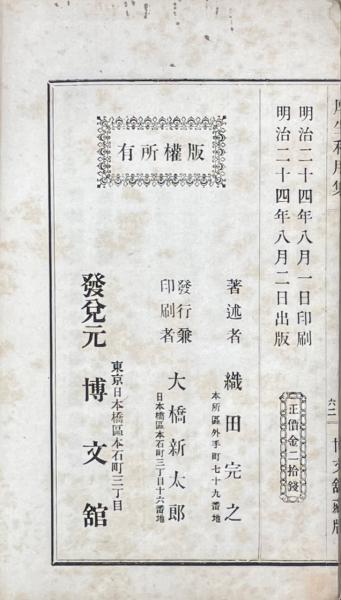 厚生利用集
六二
博文舘蔵版
明治二十四年八月一日印刷
明治二十四年八月二日出版
正價金二拾錢
版權所有
著述者 織田完之
本所區外手町七十九番地
發行兼
印刷者
大橋新太郎
日本橋區本石町三丁目十六番地
發兌元 博文舘
東京日本橋區本石町三丁目